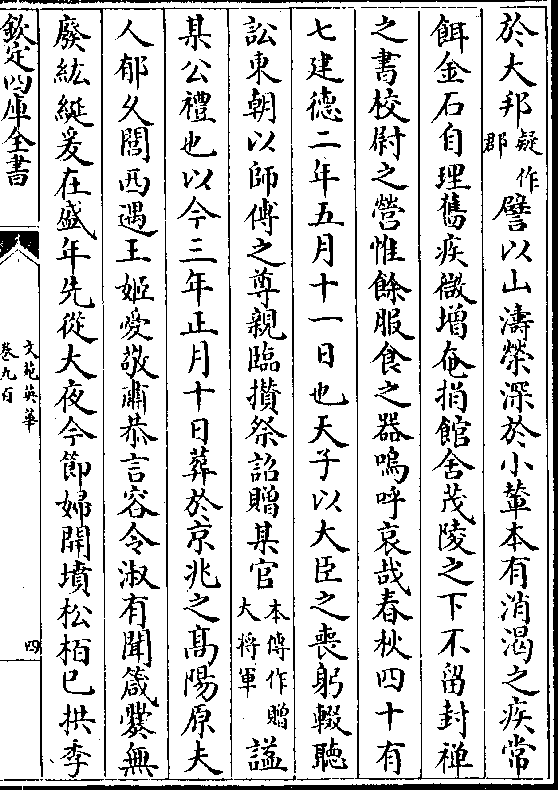 於大邦疑作郡譬以山濤榮深於小輦本有消渴之疾常
餌金石自理舊疾微增奄捐館舍茂陵之下不留封禅
之書校尉之營惟餘服食之器嗚呼哀哉春秋四十有
七建德二年五月十一日也天子以大臣之喪躬輟聽
訟東朝以師傅之尊親臨攅祭詔贈某官本傳作贈大将軍諡
某公禮也以今三年正月十日葬於京兆之髙陽原夫
人郁久閭西遇王姬愛敬肅恭言容令淑有聞箴爨無
廢紘綖爰在盛年先從大夜今節婦開墳松栢已拱季
欽定四庫全書
文苑英華
卷九百
四